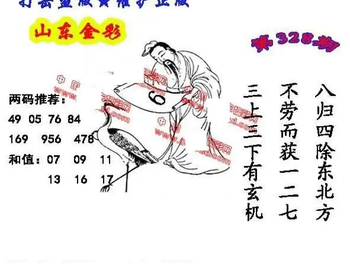 打击盗版发维护正版
山东金彩
第328期
两码推荐:
49 05 76 84
169 956 478
和值: 07 09 11
13 16 17
6
八归四除东北方
不劳而获一二七
三上三下有玄机